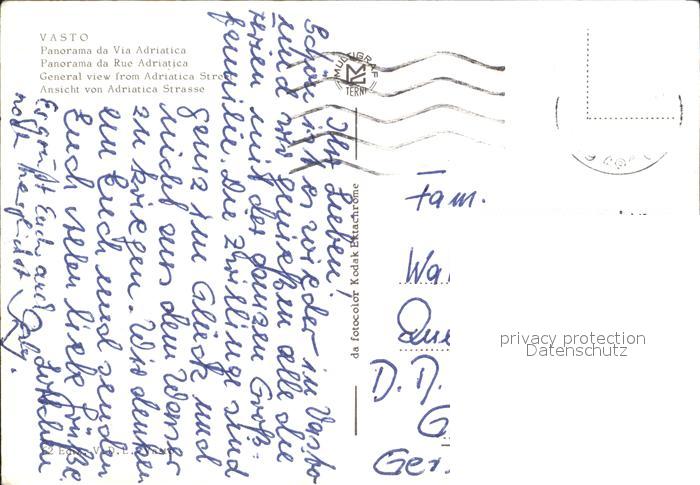 VASTO
Panorama da Via Adriatica
Panorama da Rue Adriatica
General view from Adriatica Stre
Ansicht von Adriatica Strasse
MULTIGRAF
TERNI
da fotocolor Kodak Ektachrome
Ihr Lieben!
Schön ist es wieder in Vasto
und wir genießen alle die
Ferien mit der ganzen Groß=
familie. Die Zwillinge sind
ganz im Glück und
nicht aus dem Wasser
zu kriegen. Wir denken
an Euch und senden
Euch vielen liebe Grüße.
Es grüßt Euch auch
noch herzlichst
Fam.
Wal
Que
D.
G
Ger.
privacy protection
Datenschutz